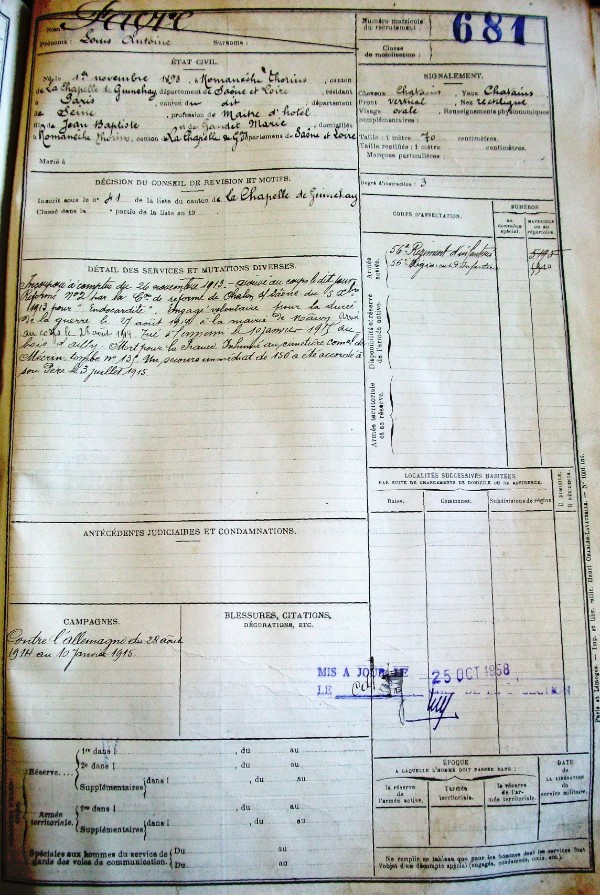 Nom : Favre
Prénoms : Louis Antoine Surnoms :
Numéro matricule
du recrutement :
681
Classe
de mobilisation :
ÉTAT CIVIL.
Né le 1er novembre 1893, à Romanèche Thorins, canton
de La Chapelle de Guinchay département de Saône et Loire, résidant
à Paris canton du dit département
de Seine, profession de Maître d'hôtel
fils de Jean Baptiste et de Gandil Marie, domiciliés
à Romanèche Thorins, canton de La Chapelle de G département de Saône et Loire
Marié à
SIGNALEMENT.
Cheveux Chatains Yeux Chatains
Front vertical Nez rectiligne
Visage ovale Renseignements physionomiques
complémentaires :
Taille : 1 mètre 70 centimètres.
Taille rectifiée : 1 mètre centimètres.
Marques particulières :
Degré d'instruction : 3
DÉCISION DU CONSEIL DE REVISION ET MOTIFS.
Inscrit sous le n° 41 de la liste du canton de La Chapelle de Guinchay
Classé dans la partie de la liste en 19
CORPS D'AFFECTATION.
NUMÉROS
au
contrôle
spécial.
MATRICULE
ou au
répertoire.
Armée
active.
56e Régiment d'infanterie
56e Régiment d'Infanterie
Disponibilité et réserve
de l'armée active.
Armée territoriale
et sa réserve.
DÉTAIL DES SERVICES ET MUTATIONS DIVERSES.
Incorporé à compter du 26 novembre 1913 - arrivé au corps le dit jour
Réformé N°2 par la Con de réforme de Chalon s/ Saône du 5 Xbre
1913 pour "Endocardite". Engagé volontaire pour la durée
de la guerre le 27 août 1914 à la mairie de Arrivé
au corps le 28 août 1914. Tué à l'ennemi le 10 janvier 1915 au
bois d'Ailly. Mort pour la France. Inhumé au cimetière comal de
Mécrin, tombe n° 13. Un secours immédiat de 150 a été accordé à
son Père le 3 juillet 1915.
LOCALITÉS SUCCESSIVES HABITÉES
PAR SUITE DE CHANGEMENTS DE DOMICILE OU DE RÉSIDENCE.
Dates. Communes. Subdivisions de région D domicile. R résidence.
ANTÉCÉDENTS JUDICIAIRES ET CONDAMNATIONS.
CAMPAGNES.
Contre l'allemagne du 28 août
1914 au 10 janvier 1915.
BLESSURES, CITATIONS,
DÉCORATIONS, ETC.
MIS A JOUR LE 25 OCT 1958
LE SECTION
Réserve....
1re dans l , du au
2e dans l , du au
Supplémentaires dans l , du au
Armée
territoriale.
1re dans l , du au
Supplémentaires dans l , du au
Spéciales aux hommes du service de
garde des voies de communication.
Du au
Du au
ÉPOQUE
A LAQUELLE L'HOMME DOIT PASSER DANS :
la réserve
de l'armée active.
l'armée
territoriale.
la réserve
de l'ar-
mée territoriale.
DATE
de
LA LIBÉRATION
du
service militaire.
Ne remplir ce tableau que pour les hommes dont les services font
l'objet d'un décompte spécial (engagés, condamnés, omis, etc.).
Paris et Limoges. — Imp. et libr. milit. Henri Charles-Lavauzelle.